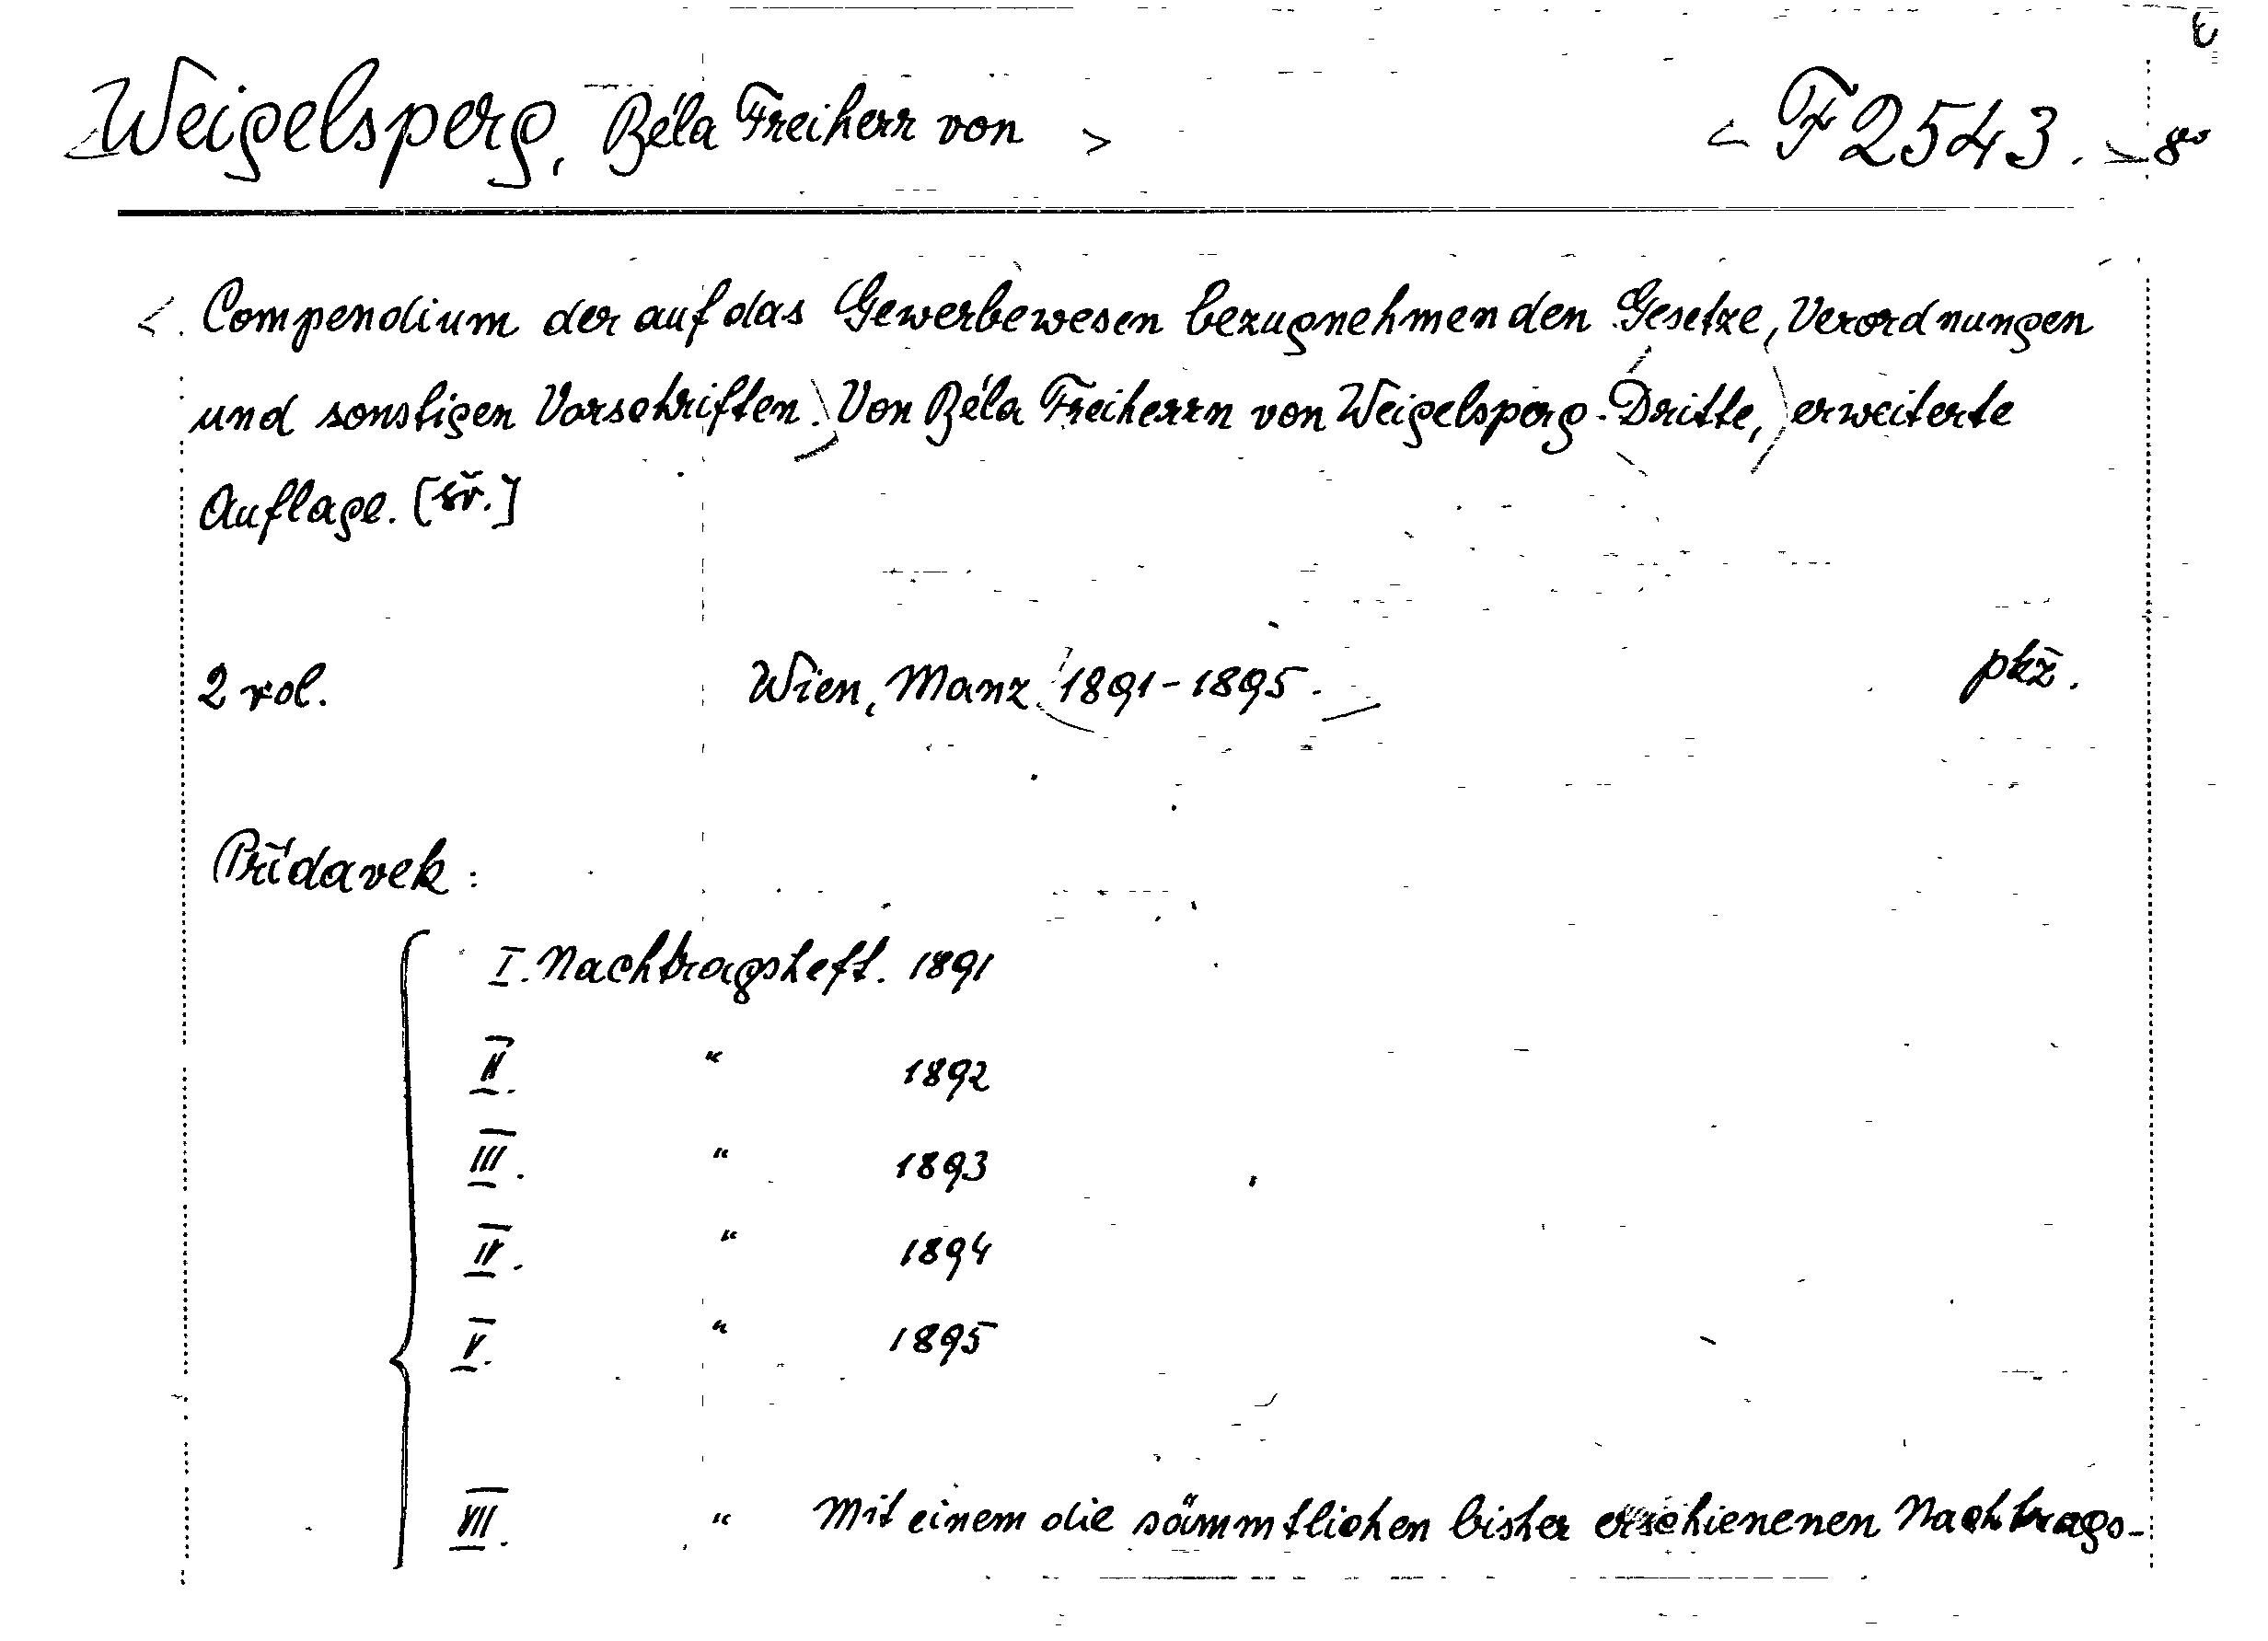 Weigelsperg, Béla Freiherr von > < F 2543. > 8°
< Compendium der auf das Gewerbewesen bezugnehmenden Gesetze, Verordnungen
und sonstigen Vorschriften. Von Béla Freiherrn von Weigelsperg. Dritte, erweiterte
Auflage. [šv.]
2 vol. Wien, Manz 1891-1895. pkž.
Přídavek:
I. Nachtragsheft. 1891
II. " 1892
III. " 1893
IV. " 1894
V. " 1895
VII. " Mit einem die sämmtlichen bisher erschienenen Nachtrags-